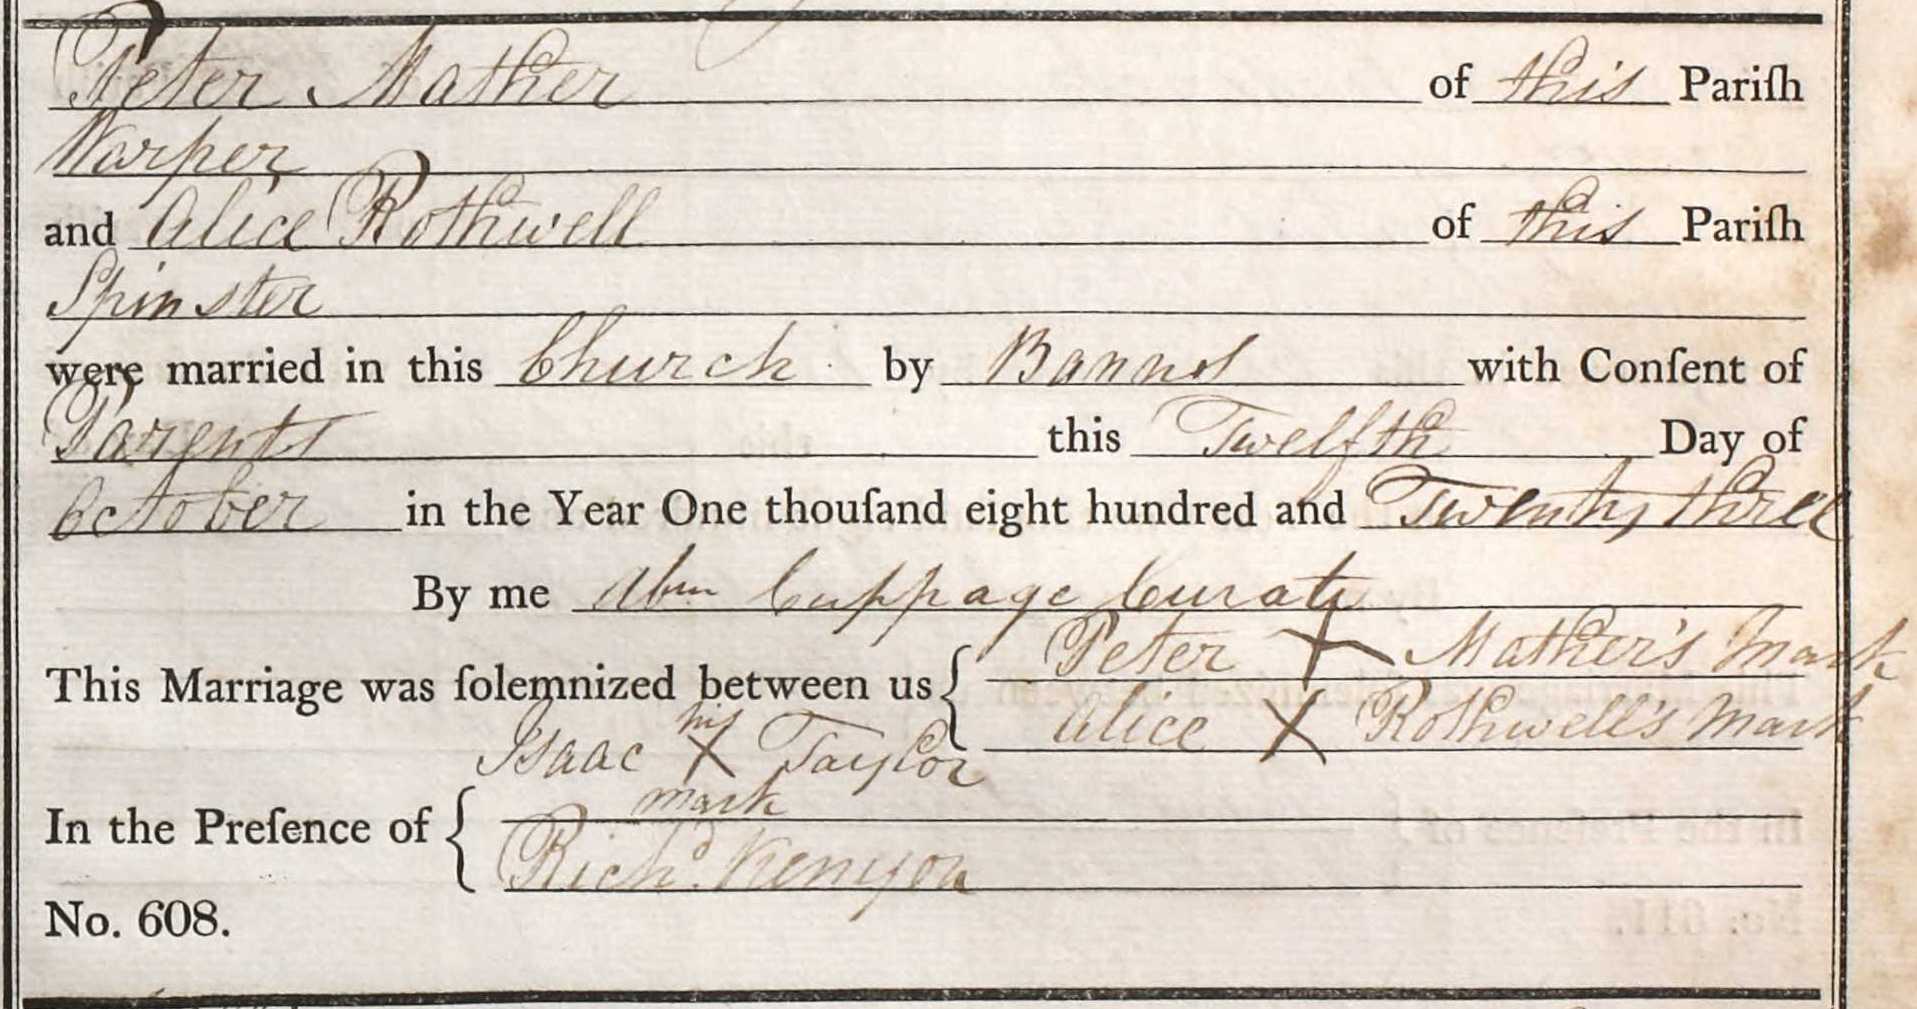 Peter Mather of this Pariſh
Warper
and Alice Rothwell of this Pariſh
Spinster
were married in this Church by Banns with Conſent of
Parents this Twelfth Day of
October in the Year One thouſand eight hundred and Twenty three
By me Abm Cuppage Curate
This Marriage was ſolemnized between us { Peter X Mather's Mark
Alice X Rothwell's Mark
his
Isaac X Taylor
mark
In the Preſence of {
Richd. Kenyon
No. 608.